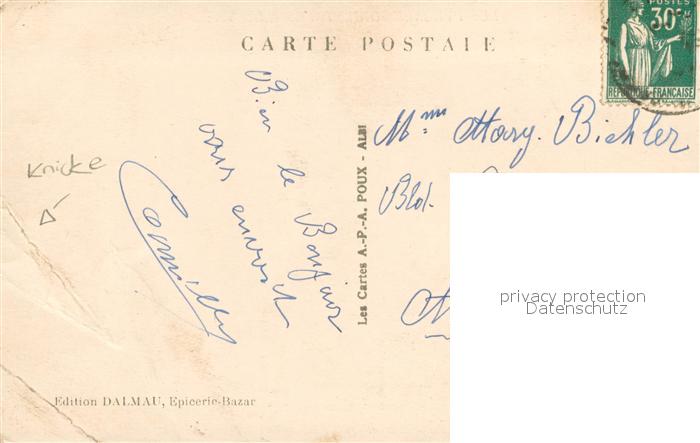 POSTES
30c
RÉPUBLIQUE FRANÇAISE
CARTE POSTALE
Bien le Bonjour
vous envoit
Camille
Les Cartes A.-P.-A. POUX - ALBI
Mme Mary. Bichler
Bld.
Knicke
privacy protection
Datenschutz
Edition DALMAU, Epicerie-Bazar